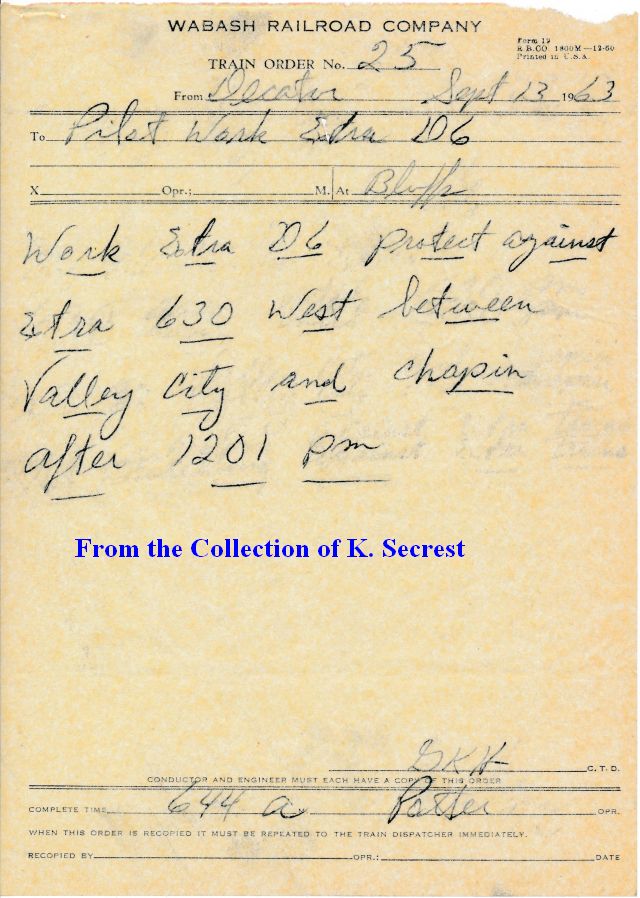 WABASH RAILROAD COMPANY
Form 19
R.B.CO 1800M—12-60
Printed in U.S.A.
TRAIN ORDER No. 25
From Decatur Sept 13 1963
To Pilot Work Extra D6
X Opr.; M. At Bluffs
Work Extra D6 protect against
Extra 630 West between
Valley City and Chapin
after 1201 pm
From the Collection of K. Secrest
GKH C.T.D.
CONDUCTOR AND ENGINEER MUST EACH HAVE A COPY OF THIS ORDER
COMPLETE TIME 644 a Potter OPR.
WHEN THIS ORDER IS RECOPIED IT MUST BE REPEATED TO THE TRAIN DISPATCHER IMMEDIATELY.
RECOPIED BY OPR.: DATE